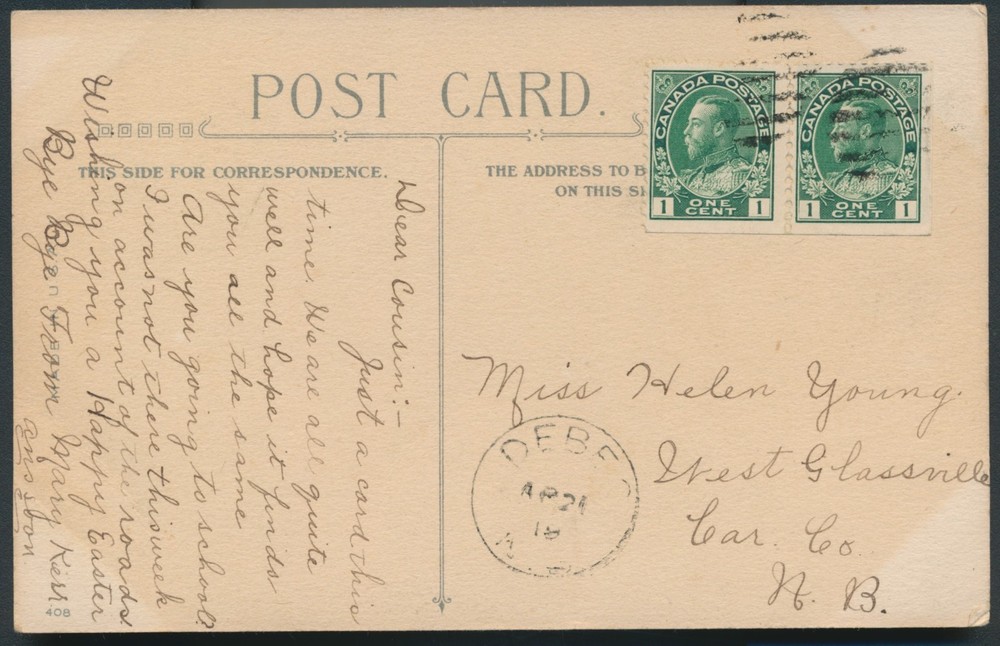 POST CARD.
THIS SIDE FOR CORRESPONDENCE.
THE ADDRESS TO B
ON THIS SI
CANADA POSTAGE
1 ONE CENT 1
CANADA POSTAGE
1 ONE CENT 1
Dear Cousin:-
Just a card this
time. We are all quite
well and hope it finds
you all the same
Are you going to school?
I was not there this week
on account of the roads
Wishing you a Happy Easter
Bye Bye From Mary Kerr
ans soon
Miss Helen Young.
West Glassville
Car. Co.
N. B.
DEBEC
AP 21
N.B.
408